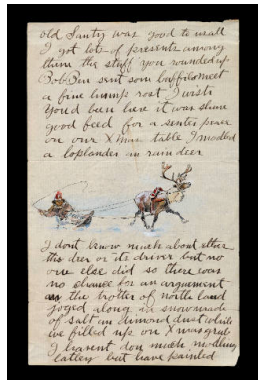 old Santy was good to us all
I got lots of presents among
them the stuff you rounded up
Bob Ban sent som buffilo meet
a fine hump rost I wish
Youd been here it was shure
good feed for a senter peace
on our Xmas table I modled
a loplander an raindeer
I dont know much about ether
the deer or its driver but no
one else did so there was
no chance for an arguement
as the trotter of north land
joged along in snow made
of salt an dimond dust while
we filled up on Xmas grub
I havent don much modling
latley but have painted